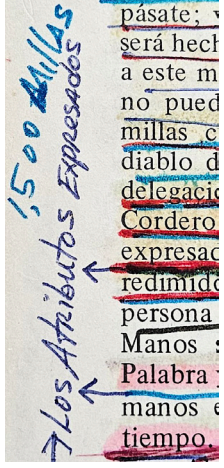 1,500 Millas
→ Los Atributos Expresados
pásate; y
será hech
a este m
no pued
millas c
diablo d
delegaci
Cordero
expresad
redimido
persona
Manos s
Palabra
manos e
tiempo.